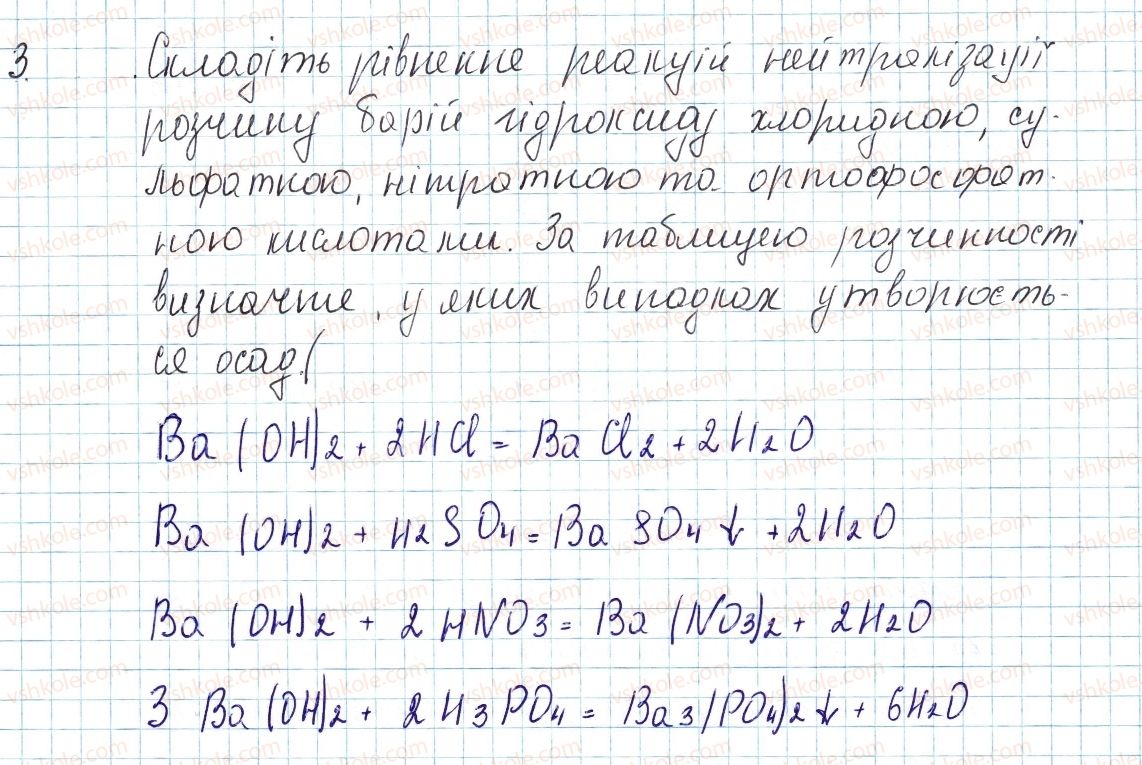 3. Складіть рівнення реакцій нейтралізації
розчину барій гідроксиду хлоридною, су-
льфатною, нітратною та ортофосфат-
ною кислотами. За таблицею розчинності
визначте, у яких випадках утворюєть-
ся осад.
Ba(OH)2 + 2HCl = BaCl2 + 2H2O
Ba(OH)2 + H2SO4 = BaSO4↓ + 2H2O
Ba(OH)2 + 2HNO3 = Ba(NO3)2 + 2H2O
3Ba(OH)2 + 2H3PO4 = Ba3(PO4)2↓ + 6H2O